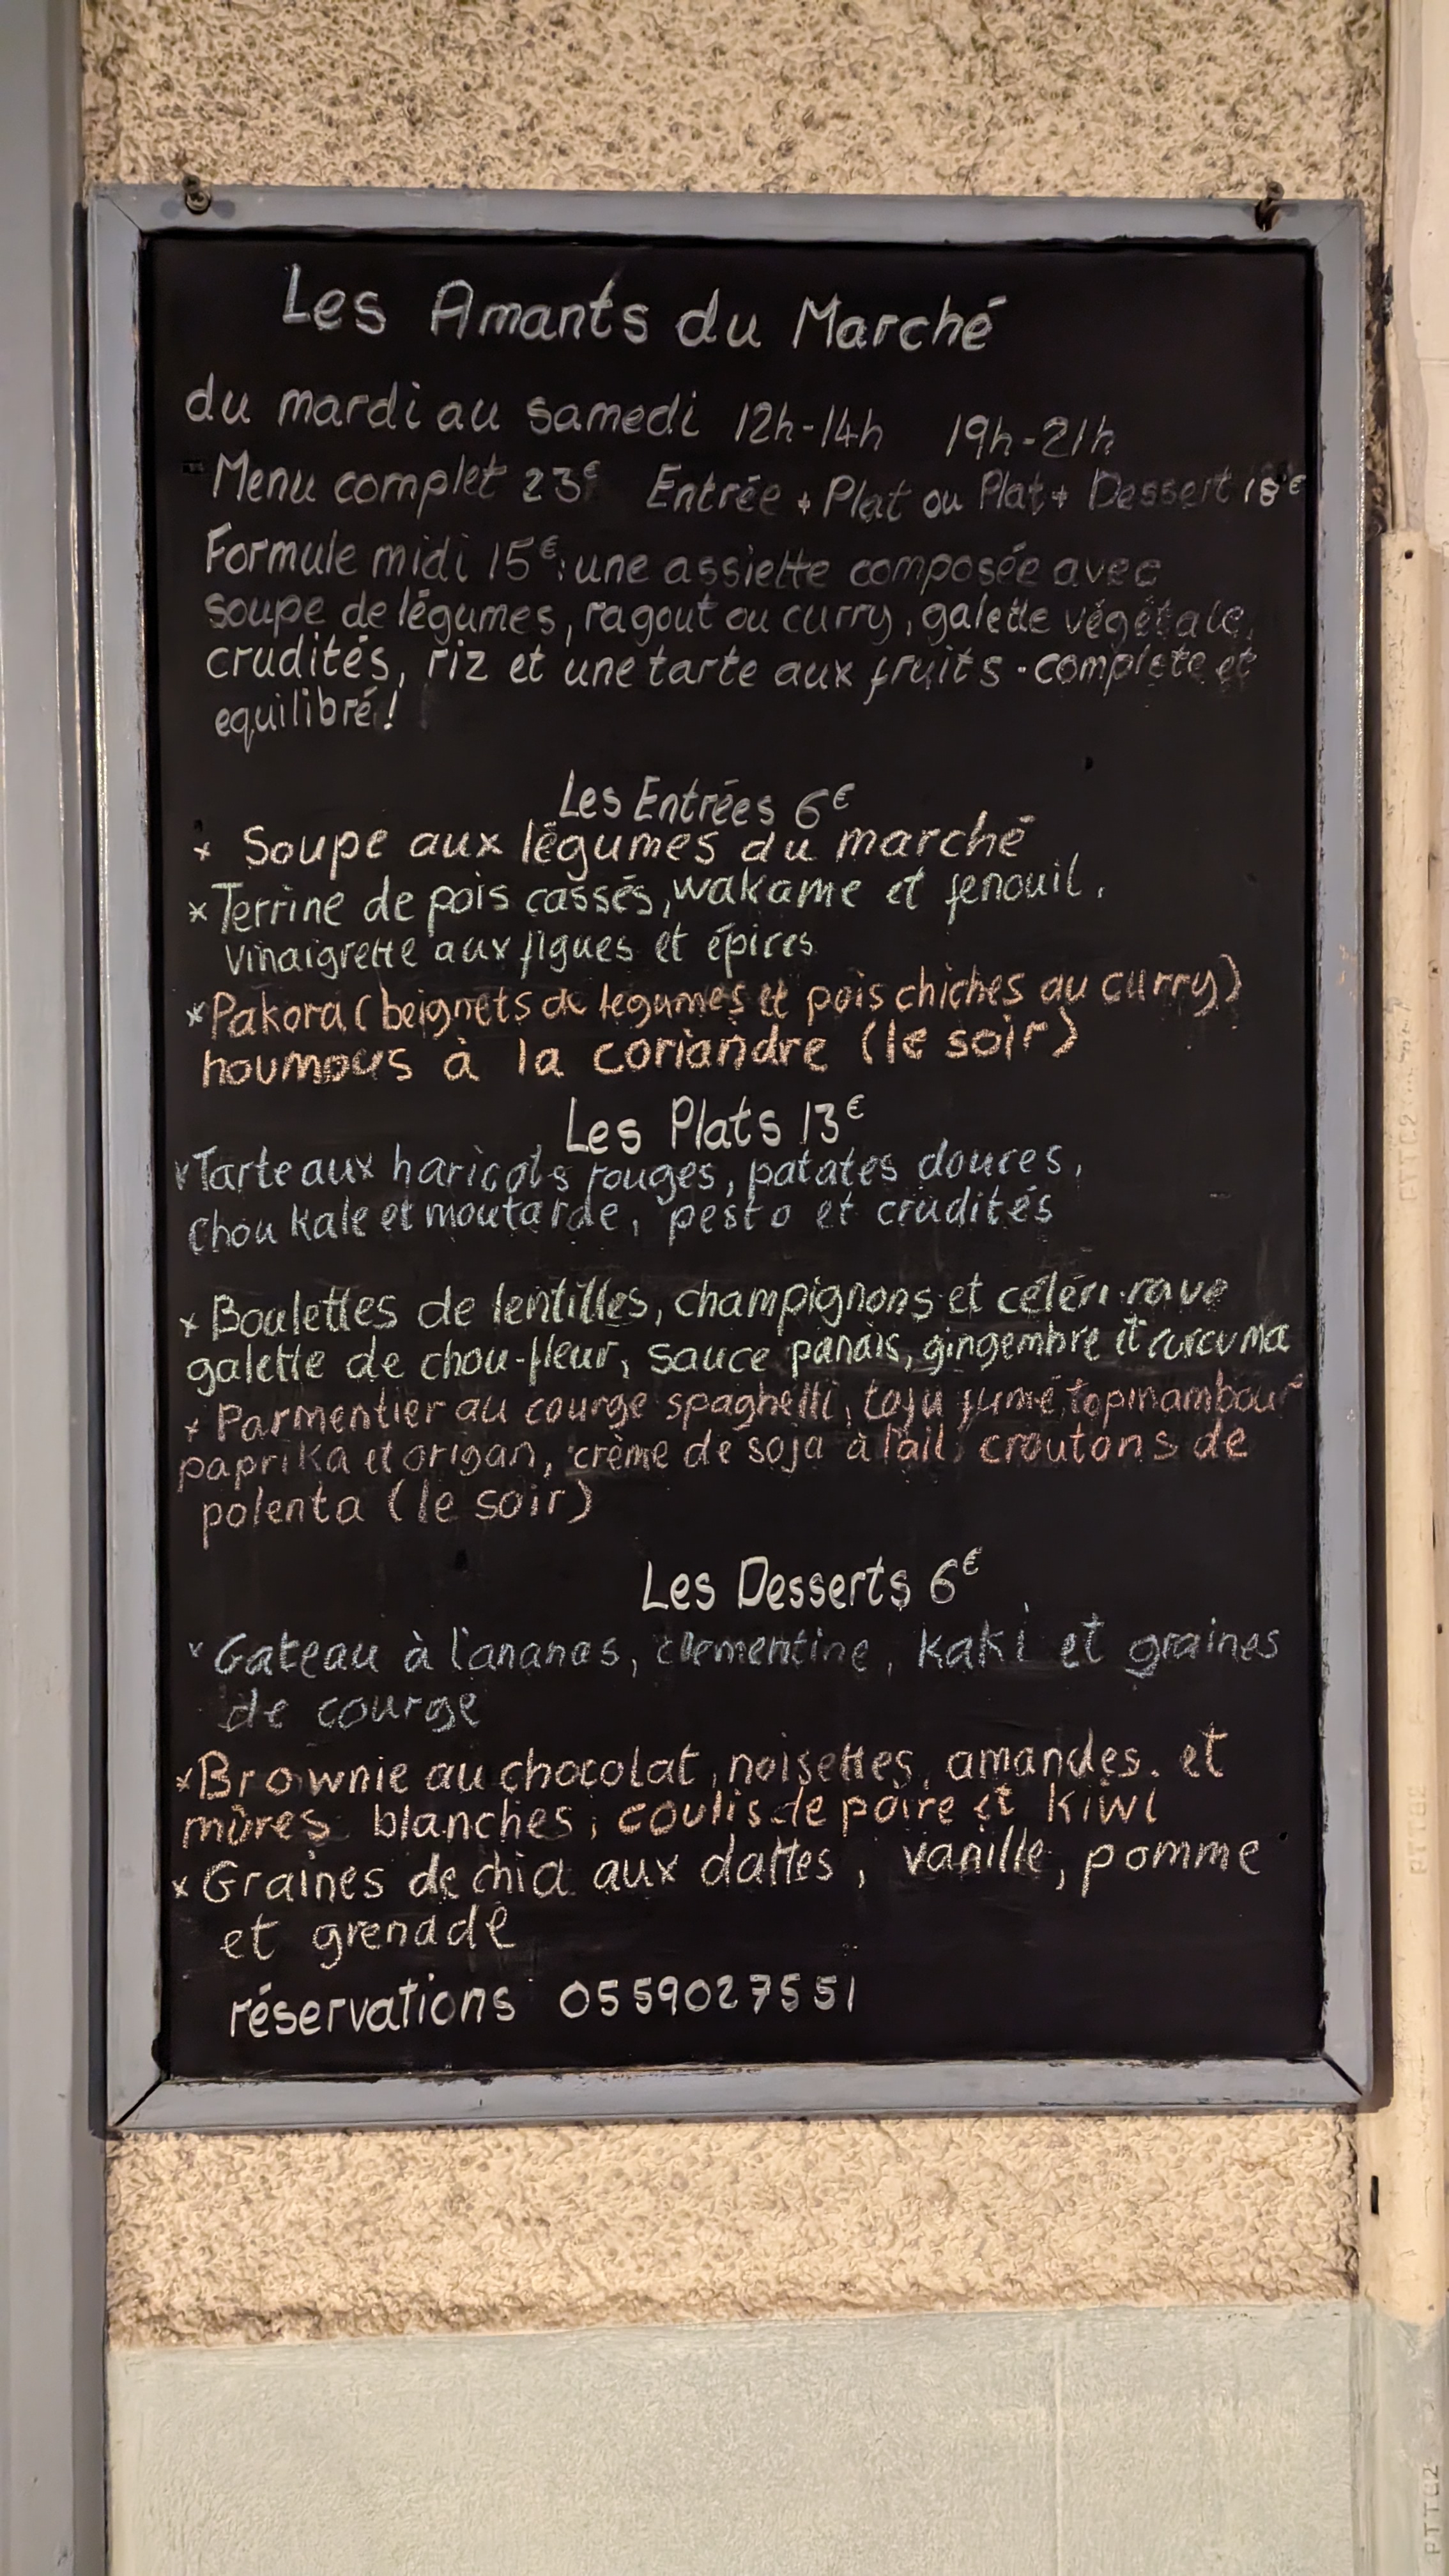 Les Amants du Marché
du mardi au samedi 12h-14h 19h-21h
Menu complet 23€ Entrée + Plat ou Plat + Dessert 18€
Formule midi 15€: une assiette composée avec
soupe de légumes, ragout ou curry, galette végétale,
crudités, riz et une tarte aux fruits - complete et
equilibré!
Les Entrées 6€
* Soupe aux légumes du marché
* Terrine de pois cassés, wakame et fenouil,
vinaigrette aux figues et épices
* Pakora (beignets de legumes et pois chiches au curry)
houmous à la coriandre (le soir)
Les Plats 13€
* Tarte aux haricots rouges, patates douces,
chou kale et moutarde, pesto et crudités
* Boulettes de lentilles, champignons et céleri-rave
galette de chou-fleur, sauce panais, gingembre et curcuma
* Parmentier au courge spaghetti, tofu fumé, topinambour
paprika et origan, crème de soja à l'ail, croutons de
polenta (le soir)
Les Desserts 6€
* Gateau à l'ananas, clementine, kaki et graines
de courge
* Brownie au chocolat, noisettes, amandes, et
mûres blanches, coulis de poire et kiwi
* Graines de chia aux dattes, vanille, pomme
et grenade
réservations 0559027551
PTT 02